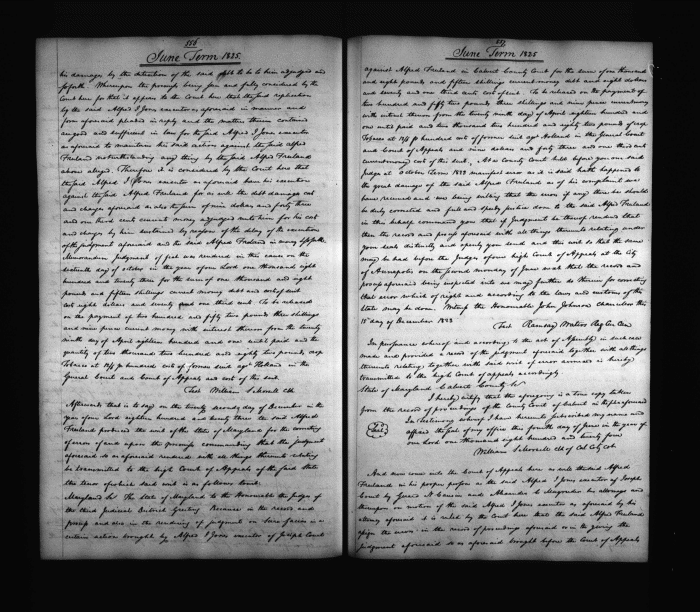 556
June Term 1825.
his damages by the detention of the said debt to be to him adjudged and
so forth. Whereupon the premises being seen and fully considered by the
Court here for that it appears to the Court here that the said replication
by the said Alfred I Jones executor as aforesaid in manner and
form aforesaid pleaded in reply and the matters therein contained
are good and sufficient in law for the said Alfred I Jones executor
as aforesaid to maintain his said action against the said Alfred
Freeland notwithstanding any thing by the said Alfred Freeland
above alleged. Therefore it is considered by the Court here that
the said Alfred I Jones executor as aforesaid have his execution
against the said Alfred Freeland for as well the debt damages cost
and charges aforesaid as also the sum of nine dollars and forty three
and one third cents current money adjudged unto him for his cost
and charges by him sustained by reason of the delay of the execution
of the judgment aforesaid and the said Alfred Freeland in mercy &c
Memorandum Judgment of fiat was rendered in this cause on the
day of October in the year of our Lord one thousand eight
hundred and twenty three for the sum of one thousand and eight
pounds and fifteen shillings current money debt and cost of suit
eight dollars and seventy and one third cents. To be released
on the payment of two hundred and fifty two pounds three shillings
and nine pence current money with interest thereon from the twenty
ninth day of April eighteen hundred and one until paid and the
quantity of two thousand two hundred and eighty two pounds
Tobacco at hundred cost of former said agt Holland in the
General Court and Court of Appeals and cost of this suit
Test William Clk
Afterwards that is to say on the twenty second day of December in the
year of our Lord eighteen hundred and twenty three the said Alfred
Freeland produced the writ of the State of Maryland for the correcting
of errors of and upon the premises commanding that the judgment
aforesaid so as aforesaid rendered with all things thereunto relating
be transmitted to the high Court of Appeals of the said State
the tenor of which said writ is as follows to wit:
Maryland The State of Maryland to the Honourable the Judges of
the third Judicial District Greeting Because in the record and
process and also in the rendering of judgment on Scire facias in a
certain action brought by Alfred I Jones executor of Joseph Court
557
June Term 1825
against Alfred Freeland in Calvert County Court for the sum of one thousand
and eight pounds and fifteen shillings current money debt and eight dollars
and seventy and one third cents cost of suit. To be released on the payment of
two hundred and fifty two pounds three shillings and nine pence current money
with interest thereon from the twenty ninth day of April eighteen hundred and
one until paid and two thousand two hundred and eighty two pounds of
Tobacco at hundred cost of former said agt Holland in the General Court
and Court of Appeals and nine dollars and forty three and one third cents
current money cost of this suit. At a County Court held before you our said
Judges at October Term 1823 manifest error as it is said hath happened to
the great damage of the said Alfred Freeland as of his complaint we
have received and we being willing that the error if any there be should
be duly corrected and full and speedy justice done to the said Alfred Freeland
in this behalf command you that if Judgment be thereof rendered that
then the record and process aforesaid with all things thereunto relating under
your seals distinctly and openly you send and this writ so that the same
may be had before the Judges of our high Court of Appeals at the City
of Annapolis on the second monday of June next that the record and
process aforesaid being inspected into we may further do therein for correcting
that error which of right and according to the laws and customs of the
State may be done. Witness the Honourable John Johnson Chancellor this
15th day of December 1823
Test Ramsay Waters Reg Cur Can
In pursuance whereof and according to the act of Assembly in such case
made and provided a record of the judgment aforesaid together with all things
thereunto relating together with said writ of error annexed is hereby
transmitted to the high Court of appeals accordingly
State of Maryland Calvert County
I hereby certify that the foregoing is a true copy taken
from the record of proceedings of the County Court of Calvert in the plea aforesaid
In testimony whereof I have hereunto subscribed my name and
affixed the seal of my office this fourth day of June in the year of
our Lord one thousand eight hundred and twenty four
William Clk of Cal Cty Cot
And now come into the Court of Appeals here as well the said Alfred
Freeland in his proper person as the said Alfred I Jones executor of Joseph
Court by and Alexander C Magruder his attorneys and
thereupon on motion of the said Alfred I Jones executor as aforesaid by his
attorney aforesaid it is ruled by the Court here that the said Alfred Freeland
assign the errors in the record of proceedings aforesaid or in the giving the
Judgment aforesaid so as aforesaid brought before the Court of Appeals